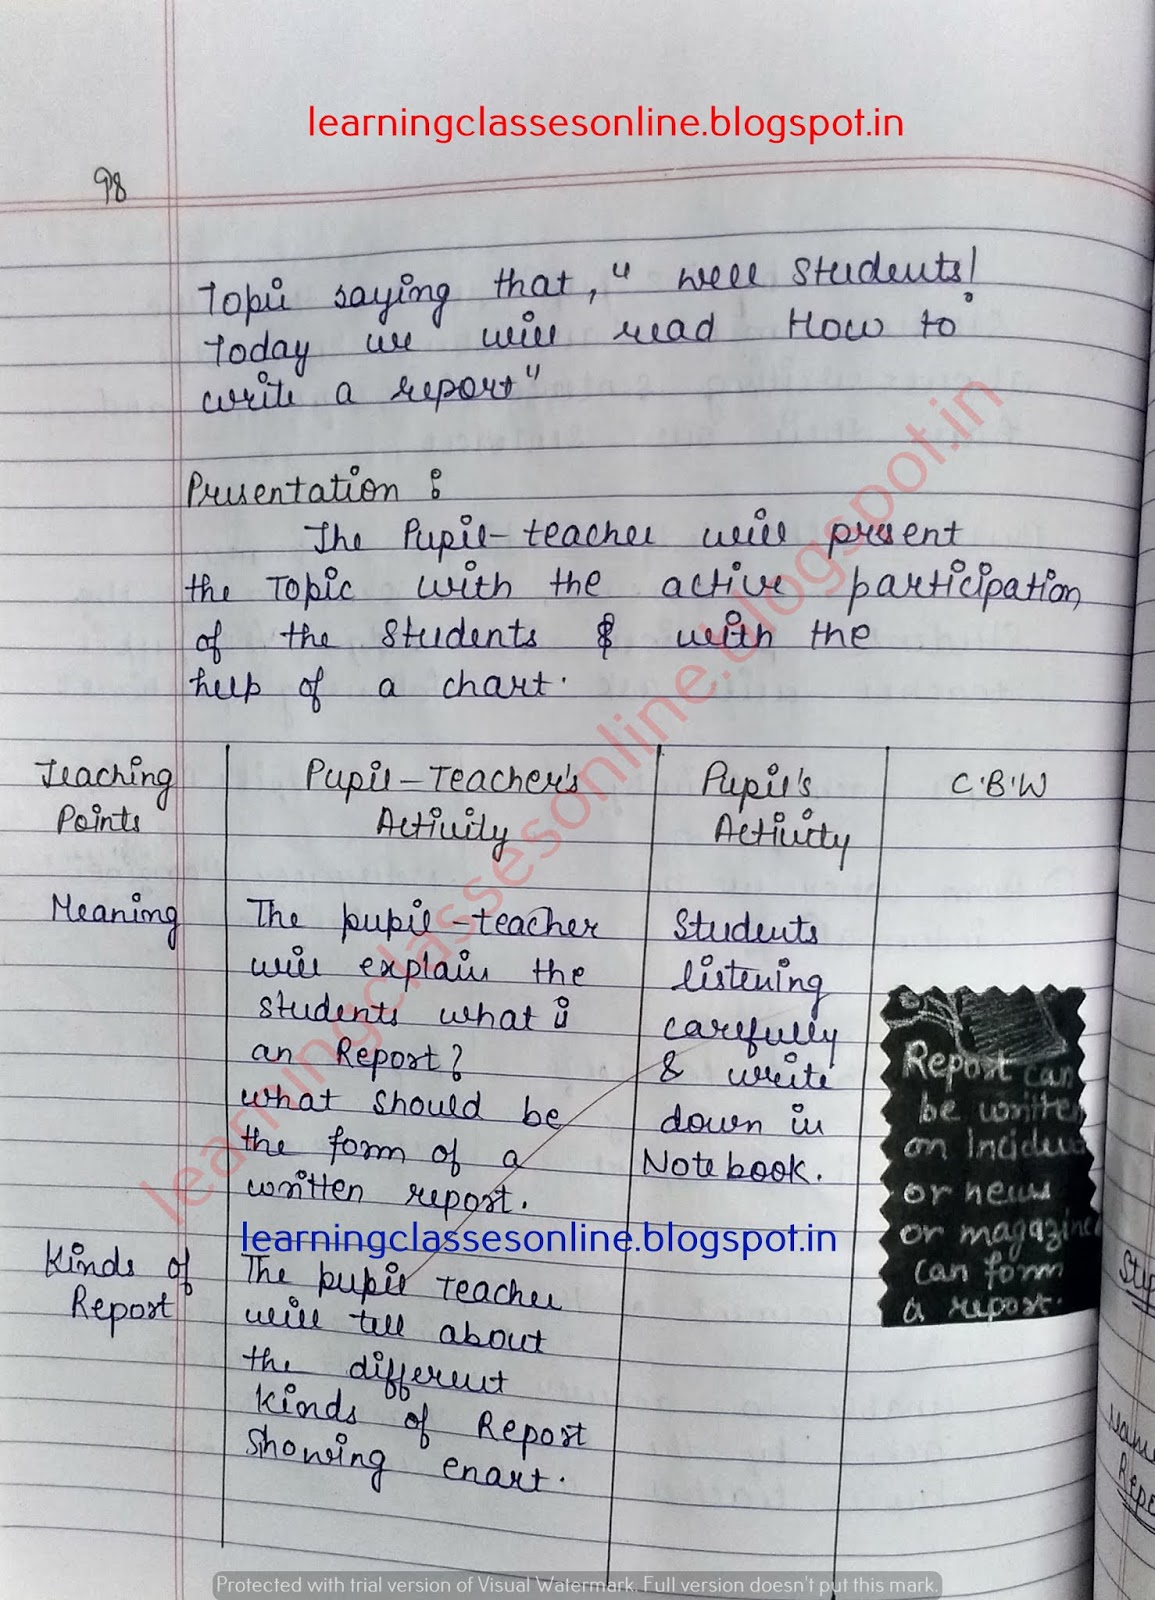 learningclassesonline.blogspot.in
98
Topic saying that, " well students!
Today we will read How to
write a report"
Presentation :
The Pupil-teacher will present
the Topic with the active participation
of the students & with the
help of a chart.
Teaching Points
Pupil-Teacher's Activity
Pupil's Activity
C.B.W
Meaning
The pupil-teacher
will explain the
students what is
an Report?
what should be
the form of a
written report.
Students
listening
carefully
& write
down in
Notebook.
Report can
be written
on Incident
or news
or magazine
can form
a report.
learningclassesonline.blogspot.in
Kinds of
Report
The pupil Teacher
will tell about
the different
kinds of Report
showing chart.
learningclassesonline.blogspot.in
Protected with trial version of Visual Watermark. Full version doesn't put this mark.